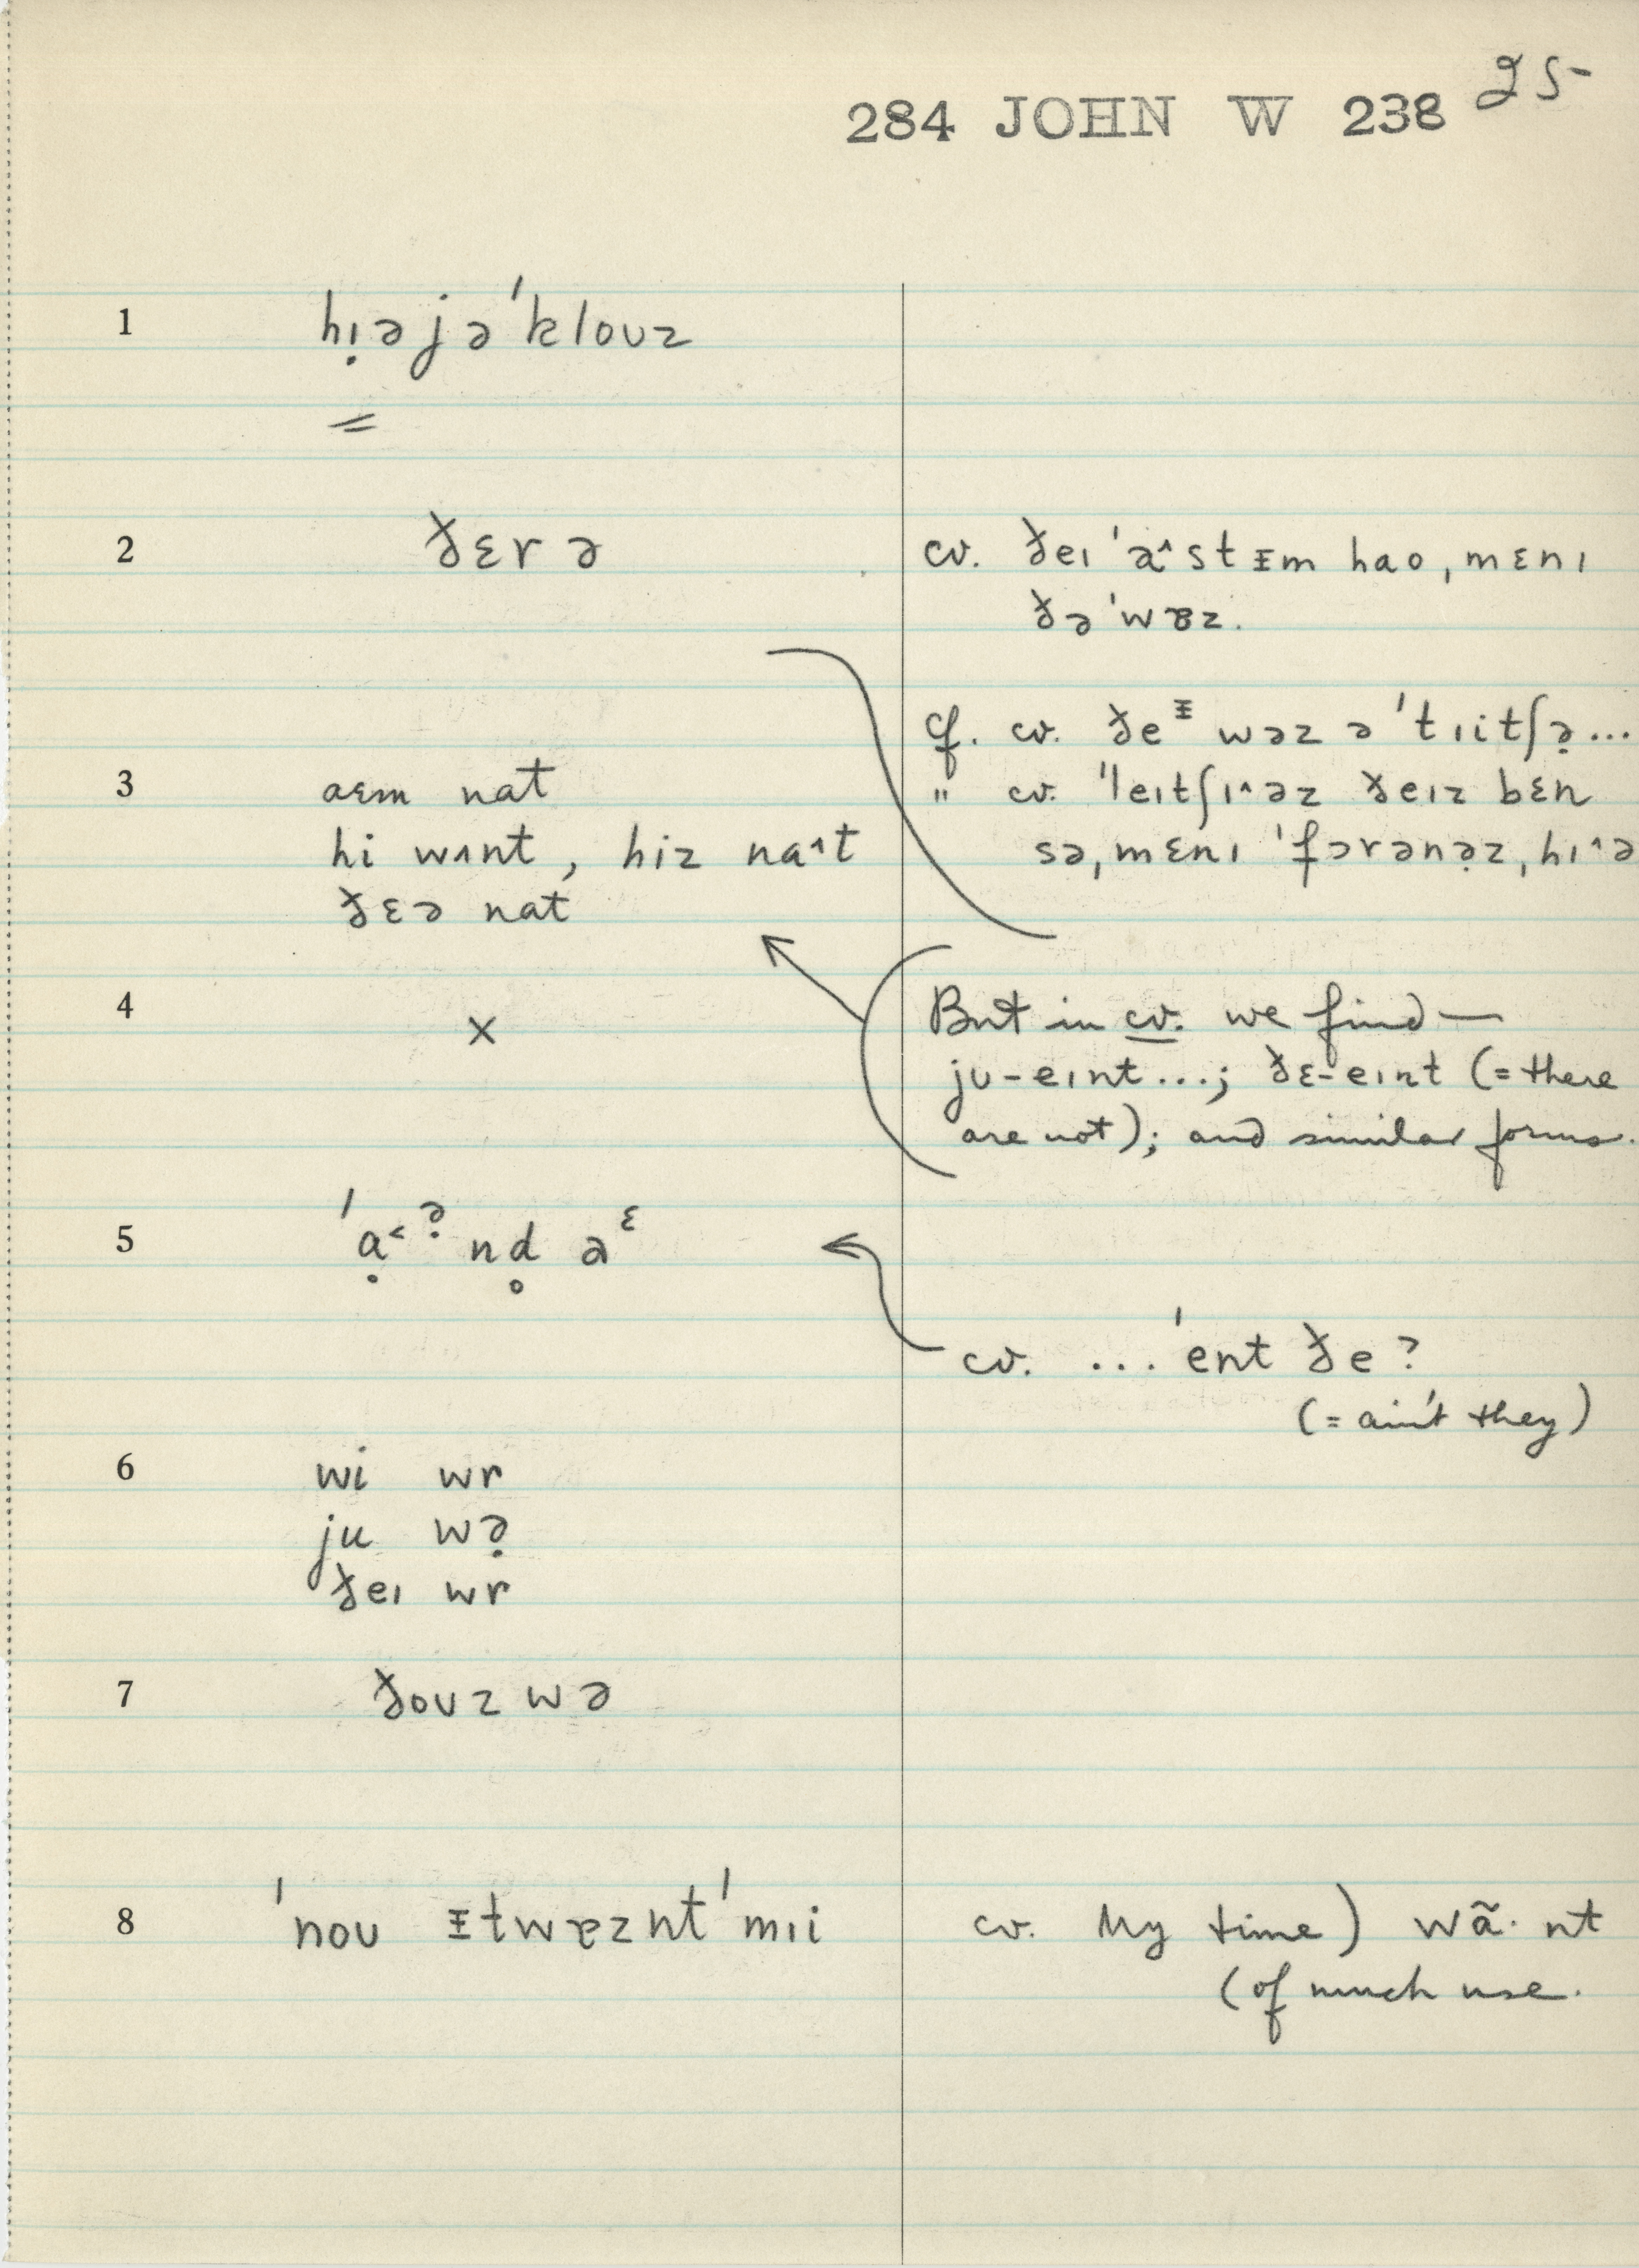 284 JOHN W 238 25-
1 hị̣əjə'klouz
=
2 ðɛrə
cv. ðeɪ 'ə˄stᵻm hao, mɛnɪ
ðə'wɐz.
3 aɛm nat
hi wʌnt, hiz na˄t
ðɛə nat
cf. cv. ðeᵻ wəz ə 'tɪitʃə̣...
" cv. 'leɪtʃɪ˄əz ðeɪz bɛn
sə, mɛnɪ 'fɔrənə̣z, hɪ˄ə
4 x
But in cv. we find —
ju-eɪnt...; ðɛ-eɪnt (= there
are not); and similar forms.
5 'ạ˂ə̣nd̥ aᵋ
cv. ...'ent ðe?
(= ain't they)
6 wi wr
ju wə̣
ðeɪ wr
7 ðouz wə
8 'nou ᵻtwɐznt'mɪi
cv. My time) wã· nt
(of much use.